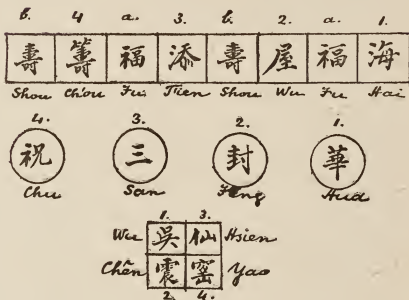 b. 4 a. 3. b. 2. a. 1.
壽 籌 福 添 壽 屋 福 海
Shou Chou Fu Tien Shou Wu Fu Hai
4. 3. 2. 1.
祝 三 封 華
Chu San Feng Hua
1. 3.
Wu 吳 仙 Hsien
Chên 震 窑 Yao
2. 4.